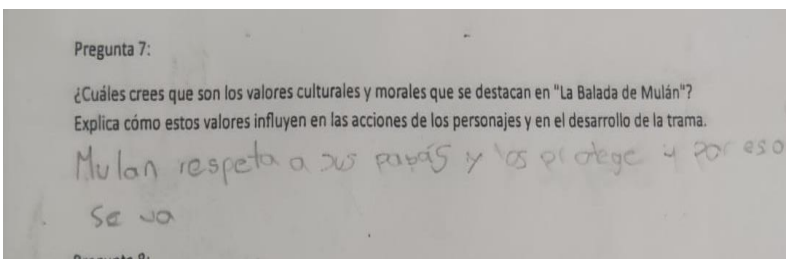 Pregunta 7:
¿Cuáles crees que son los valores culturales y morales que se destacan en "La Balada de Mulán"?
Explica cómo estos valores influyen en las acciones de los personajes y en el desarrollo de la trama.
Mulan respeta a sus papás y los protege y por eso
se va